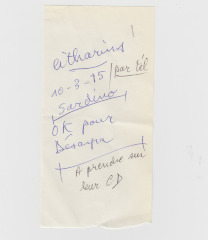 Catharina
10-3-95 / par tél
Sardino
OK pour
Désarpa
A prendre sur
leur CD